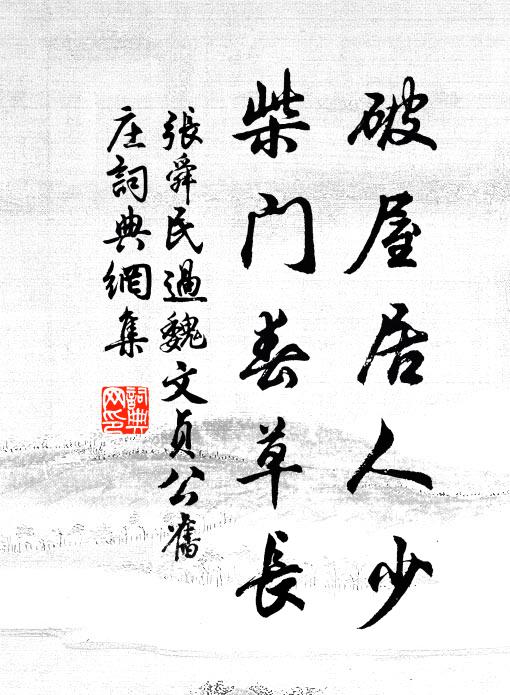 破屋居人少
柴門春草長
張舜民過魏文貞公舊
庄詞典網集
詞典
网印